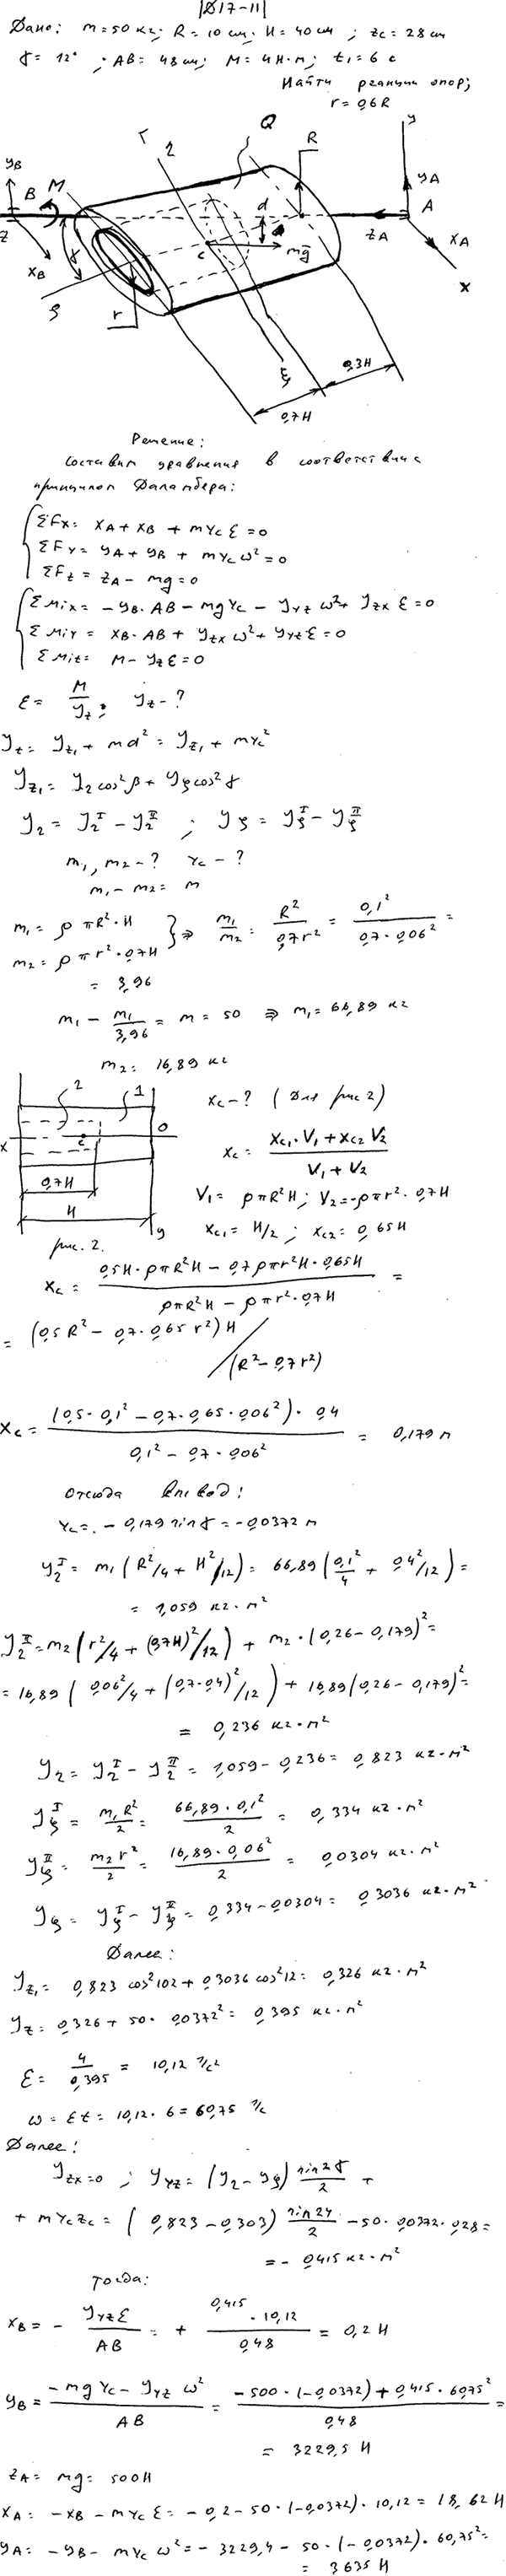 |Д17-11|
Дано: m=50 кг; R=10 см; H=40 см; zc=28 см
γ=12°; AB=48 см; M=4 Н·м; t₁=6 с
Найти реакции опор;
r=0,6R
y
R
Q
2
yB
B
M
yA
A
z
d
zA
xA
C
mg
x
xB
γ
ζ
r
ξ
0,3H
0,7H
Решение:
Составим уравнения в соответствии с
принципом Даламбера:
ΣFx: XA+XB+mYcε=0
ΣFy= YA+YB+mYcω²=0
ΣFz= ZA-mg=0
ΣMix= -YB·AB-mgYc-Jyzω²+Jzxε=0
ΣMiy= XB·AB+Jzxω²+Jyzε=0
ΣMiz= M-Jzε=0
ε= M/Jz; Jz-?
Jz= Jz₁+md²=Jz₁+mYc²
Jz₁=J2cos²β+Jζcos²γ
J2=J2ᴵ-J2ᴵᴵ; Jζ=Jζᴵ-Jζᴵᴵ
m₁, m₂-? Yc-?
m₁-m₂=m
m₁=ρπR²·H
m₂=ρπr²·0,7H } ⇒ m₁/m₂=R²/0,7r²=0,1²/0,7·0,06²=
=3,96
m₁-m₁/3,96=m=50 ⇒ m₁=66,89 кг
m₂=16,89 кг
2 1
x C O
0,7H
H
y
рис. 2.
Xc-? (Для рис 2)
Xc= (Xc₁·V₁+Xc₂V₂)/(V₁+V₂)
V₁=ρπR²H; V₂=-ρπr²·0,7H
Xc₁=H/2; Xc₂=0,65H
Xc= (0,5H·ρπR²H-0,7ρπr²H·0,65H)/(ρπR²H-ρπr²·0,7H)=
=(0,5R²-0,7·0,65r²)H/(R²-0,7r²)
Xc=(0,5·0,1²-0,7·0,65·0,06²)·0,4/(0,1²-0,7·0,06²)=0,179 м
Отсюда вывод:
Yc=-0,179sinγ=-0,0372 м
J2ᴵ=m₁(R²/4+H²/12)=66,89(0,1²/4+0,4²/12)=
=1,059 кг·м²
J2ᴵᴵ=m₂(r²/4+(0,7H)²/12)+m₂·(0,26-0,179)²=
=16,89(0,06²/4+(0,7·0,4)²/12)+16,89(0,26-0,179)²=
=0,236 кг·м²
J2=J2ᴵ-J2ᴵᴵ=1,059-0,236=0,823 кг·м²
Jζᴵ=m₁R²/2=66,89·0,1²/2=0,334 кг·м²
Jζᴵᴵ=m₂r²/2=16,89·0,06²/2=0,0304 кг·м²
Jζ=Jζᴵ-Jζᴵᴵ=0,334-0,0304=0,3036 кг·м²
Далее:
Jz₁=0,823cos²102+0,3036cos²12=0,326 кг·м²
Jz=0,326+50·0,0372²=0,395 кг·м²
ε=4/0,395=10,12 1/с²
ω=εt=10,12·6=60,75 1/с
Далее:
Jzx=0; Jyz=(J2-Jζ)sin2γ/2+
+mYcZc=(0,823-0,303)sin24/2-50·0,0372·0,28=
=-0,415 кг·м²
тогда:
XB=-Jyzε/AB=+0,415·10,12/0,48=0,2 Н
YB=(-mgYc-Jyzω²)/AB=(-500·(-0,0372)+0,415·60,75²)/0,48=
=3229,5 Н
ZA=mg=500Н
XA=-XB-mYcε=-0,2-50·(-0,0372)·10,12=18,62 Н
YA=-YB-mYcω²=-3229,4-50·(-0,0372)·60,75²=
=3635 Н